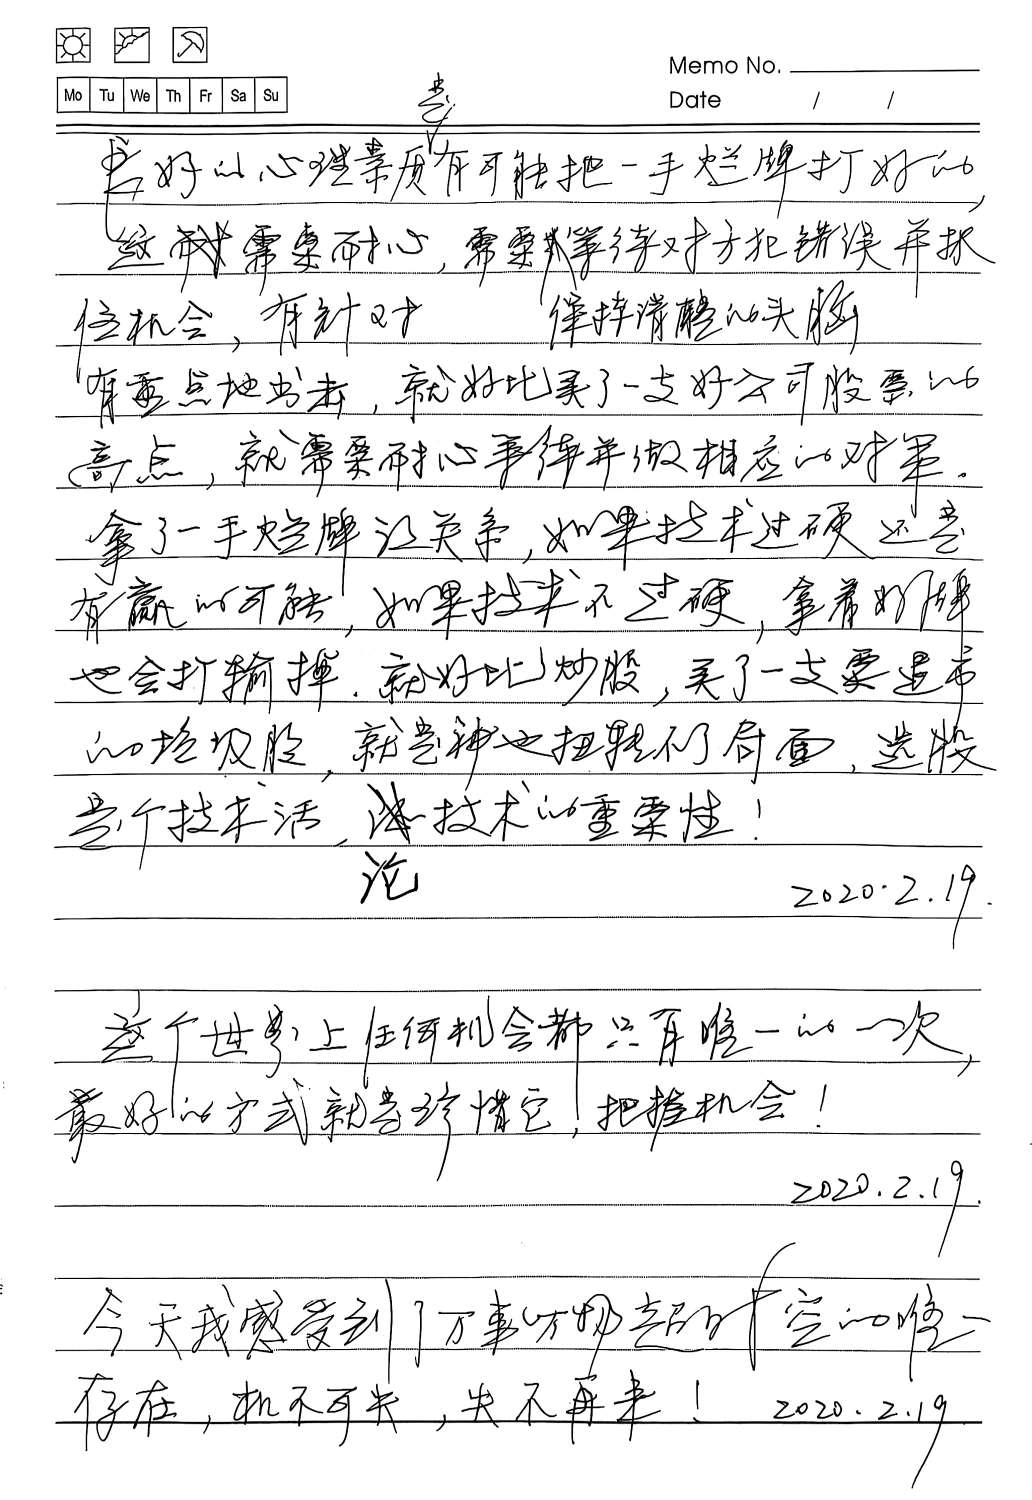 Memo No.
Mo Tu We Th Fr Sa Su
Date / /
是
好的心理素质有可能把一手烂牌打好的,
这需要耐心,需要等待对方犯错误并抓
住机会,有针对 保持清醒的头脑
有重点地出击,就好比买了一支好公司股票的
高点,就需要耐心等待并做相应的对策.
拿了一手烂牌没关系,如果技术过硬还是
有赢的可能,如果技术不过硬,拿着好牌
也会打输掉.就好比炒股,买了一支要退市
的垃圾股,就是神也扭转不了局面,选股
是个技术活,技术的重要性!
论
2020.2.19.
这个世界上任何机会都只有唯一的一次,
最好的方式就是珍惜它,把握机会!
2020.2.19.
今天我感受到了万事万物超时空的唯一
存在,机不可失,失不再来! 2020.2.19